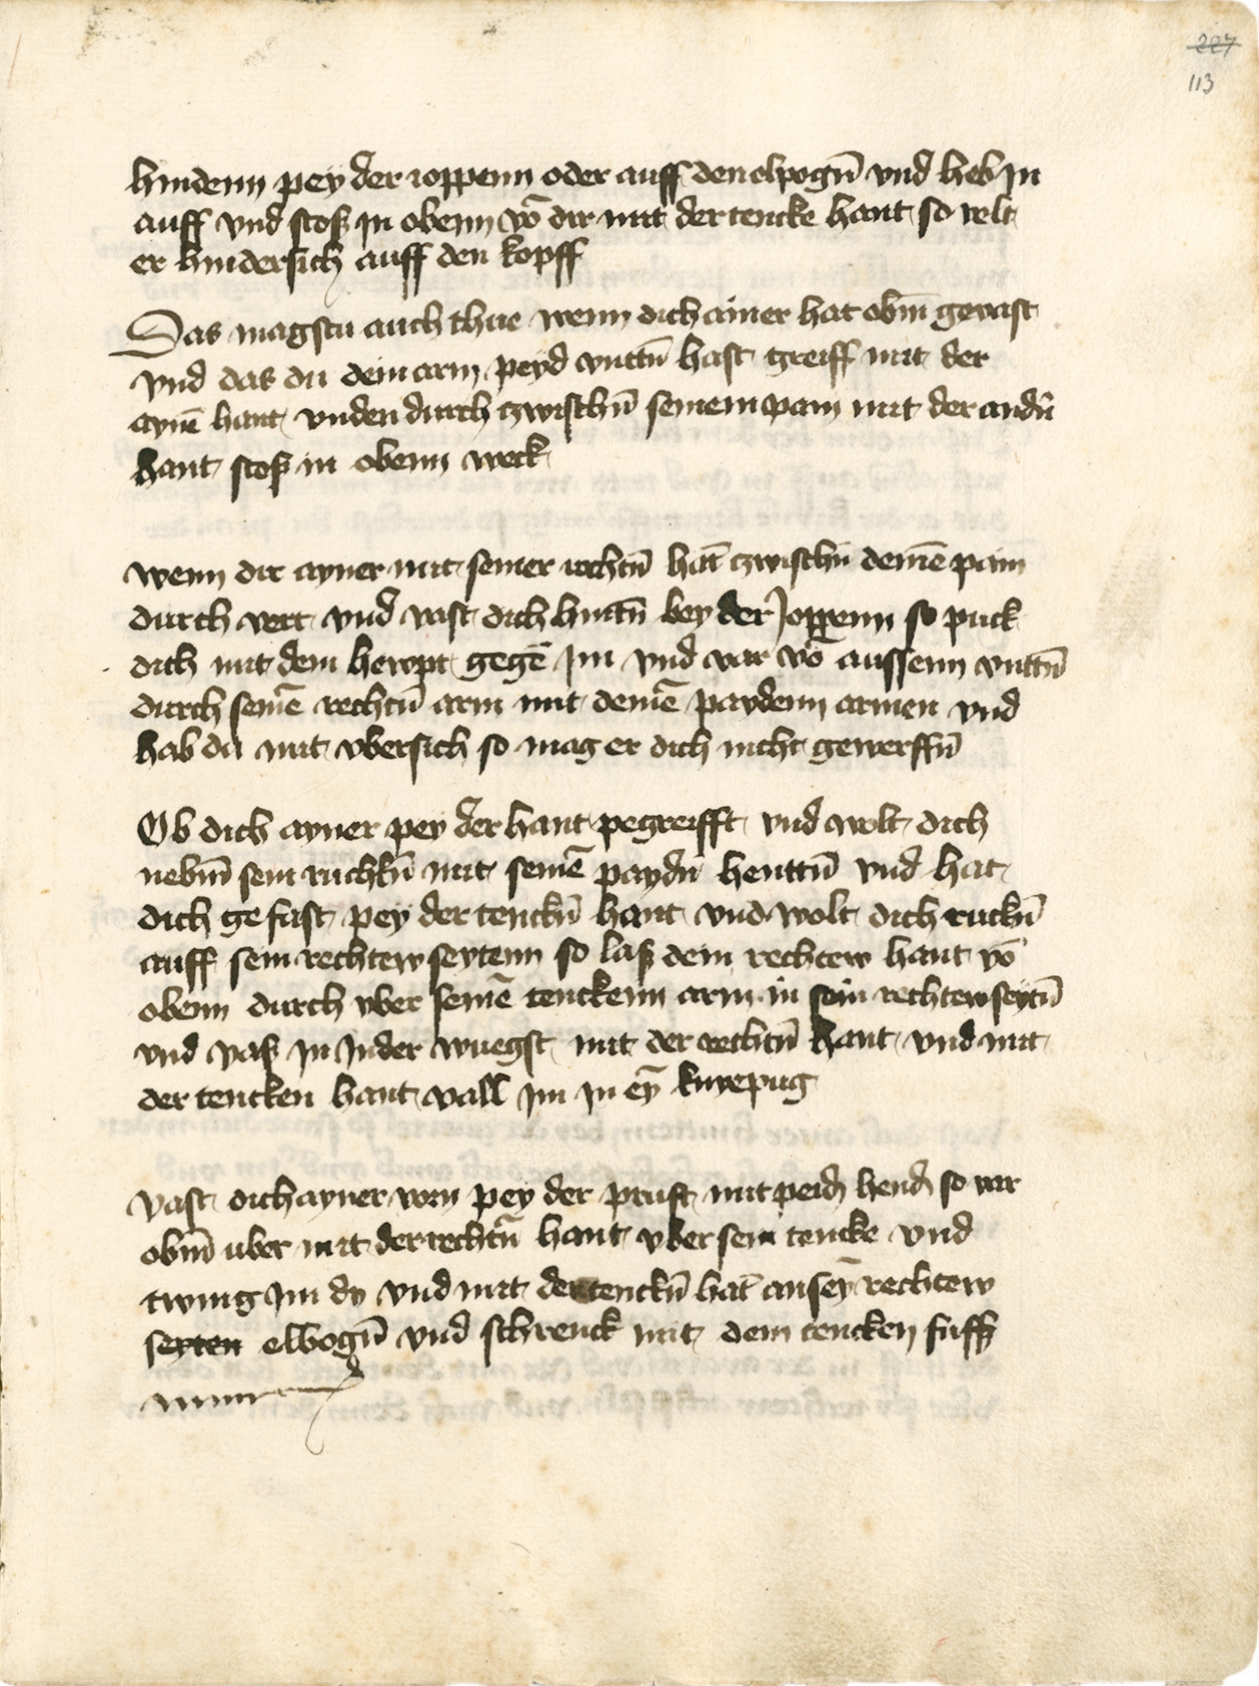 227
113
hindenn pey der ioppenn oder auff den elpogn̄ vnd heb In
auff vnd stos In obenn vō dir mit der tencke hant so velt
er hindersich auff den kopff
Das magstu auch thue wenn dich ainer hat obm̄ gevast
vnd das du dein arm peyd vnttn̄ hast greiff mit der
aynē hant vnden durch zwischn̄ seinem pain mit der andn̄
hant stos in obenn weck
wenn dir ayner mit seiner rechtn̄ hāt zwischn̄ deinē pain
durch vert vnd vast dich hintn̄ bey der Joppenn so puck
dich mit dem hewpt gegē Im vnd var vō aussenn vnttn̄
durch seinē rechtn̄ arm mit deinē paydenn armen vnd
hab da mit vbersich so mag er dich nicht gewerffn̄
Ob dich ayner pey der hant pegreifft vnd wolt dich
nebm̄ sein ruckn̄ mit seinē paydn̄ henttn̄ vnd hat
dich gefast pey der tenckn̄ hant vnd wolt dich ruckn̄
auff sein rechtew seytenn so las dein rechtew hant vō
obenn durch vber seinē tenckenn arm in sein rechtew seytn̄
vnd vas In In der wuegst mit der rechtn̄ hant vnd mit
der tencken hant vall im In eȳ kniepug
vast dich ayner vorn pey der prust mit peidn̄ hendn̄ so var
obm̄ uber mit der rechtn̄ hant vber sein tencke vnd
twing Im dy vnd mit der tenckn̄ hāt an seȳ rechtew
seyten elbogn̄ vnd schrenck mit dem tencken fuss